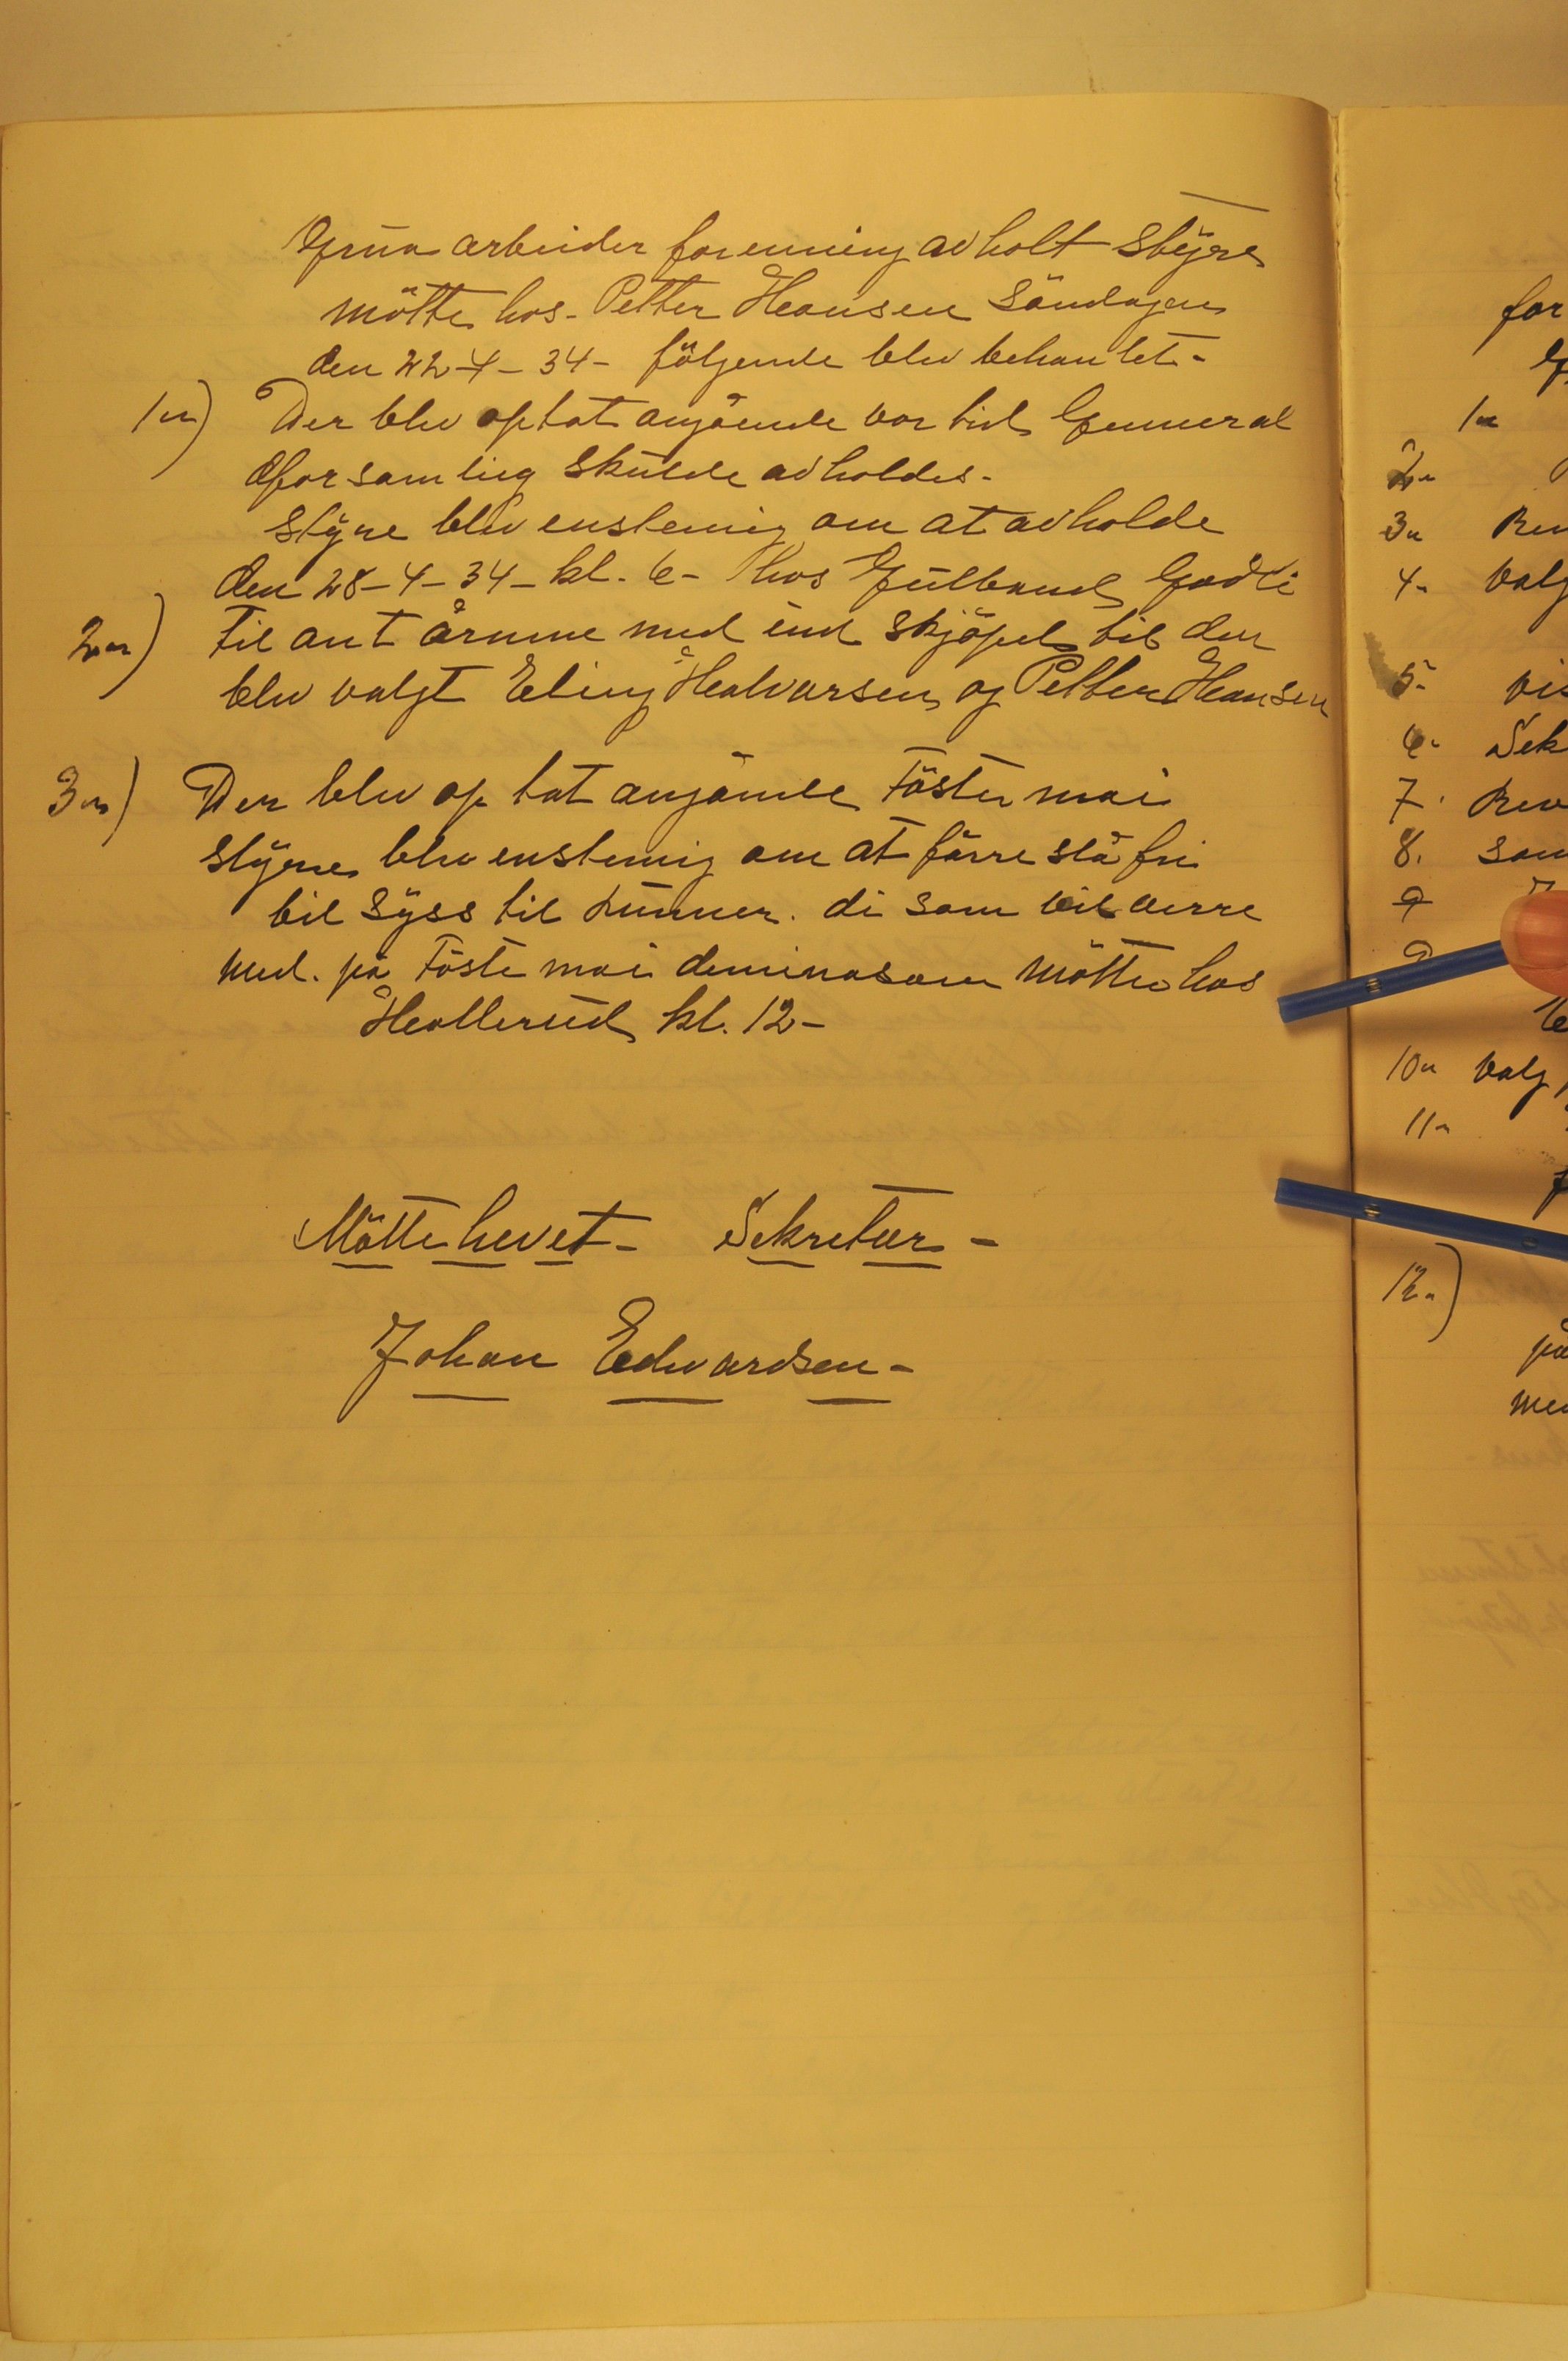 Grua arbeider forenning avholt Styre
mötte hos - Petter Hansen Söndagen
den 22-4-34 - fölgende blev behantet -
1n) Der blev optat angående vor tid Genneral
forsamling skulde avholdes -
Styre blev enstemig om at avholde
den 28-4-34 - kl. 6 - hos Gulbrand
2n) Til ant årnne med ind skjöpel til den
blev valgt Eling Halvarsen og Petter Hansen
3n) Der blev op tat angånde Föste mai
Styre blev enstemig om at färre stå fri
bil Syss til Lunner. di som vil verre
med. på Föste mai deminasom mötte hos
Hallerud kl. 12 -
Mötte hevet - Sekretær -
Johan Edvardsen -
for
1n
2n
3n Rev
4n Valg
5- vis
6- Sek
7. Rev
8. San
9
9
10n Valg
11n
12n)
på
med